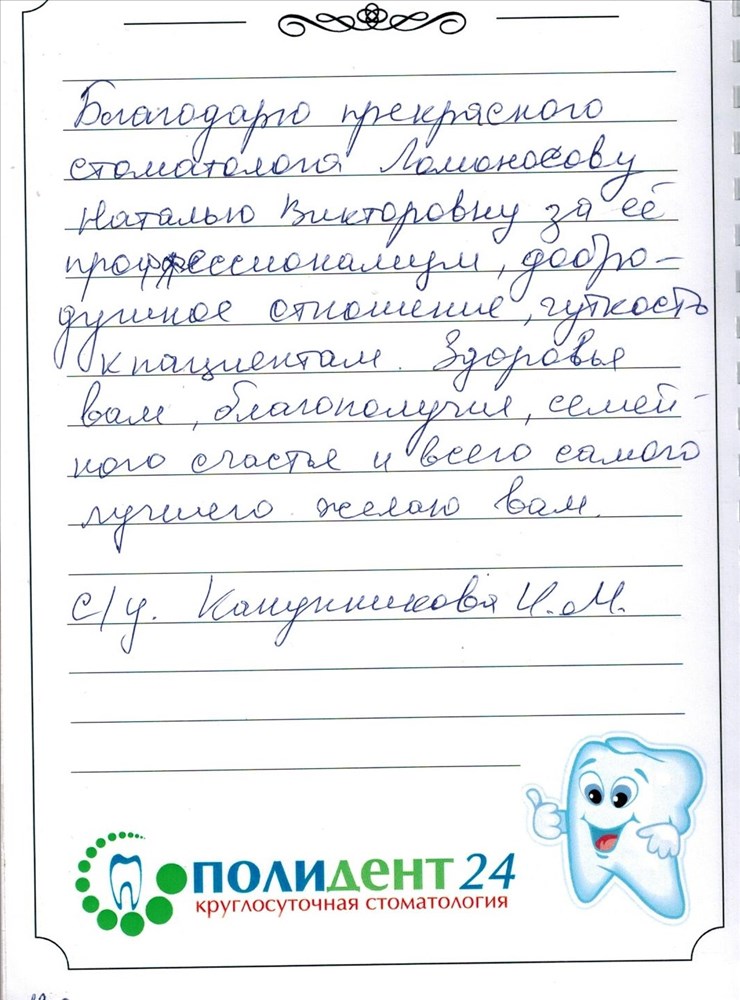 Благодарю прекрасного
стоматолога Ломоносову
Наталью Викторовну за её
профессионализм, добро-
душное отношение, чуткость
к пациентам. Здоровья
вам, благополучия, семей-
ного счастья и всего самого
лучшего желаю вам.
с/у. Канунникова И.М.
ПОЛИДЕНТ 24
КРУГЛОСУТОЧНАЯ СТОМАТОЛОГИЯ